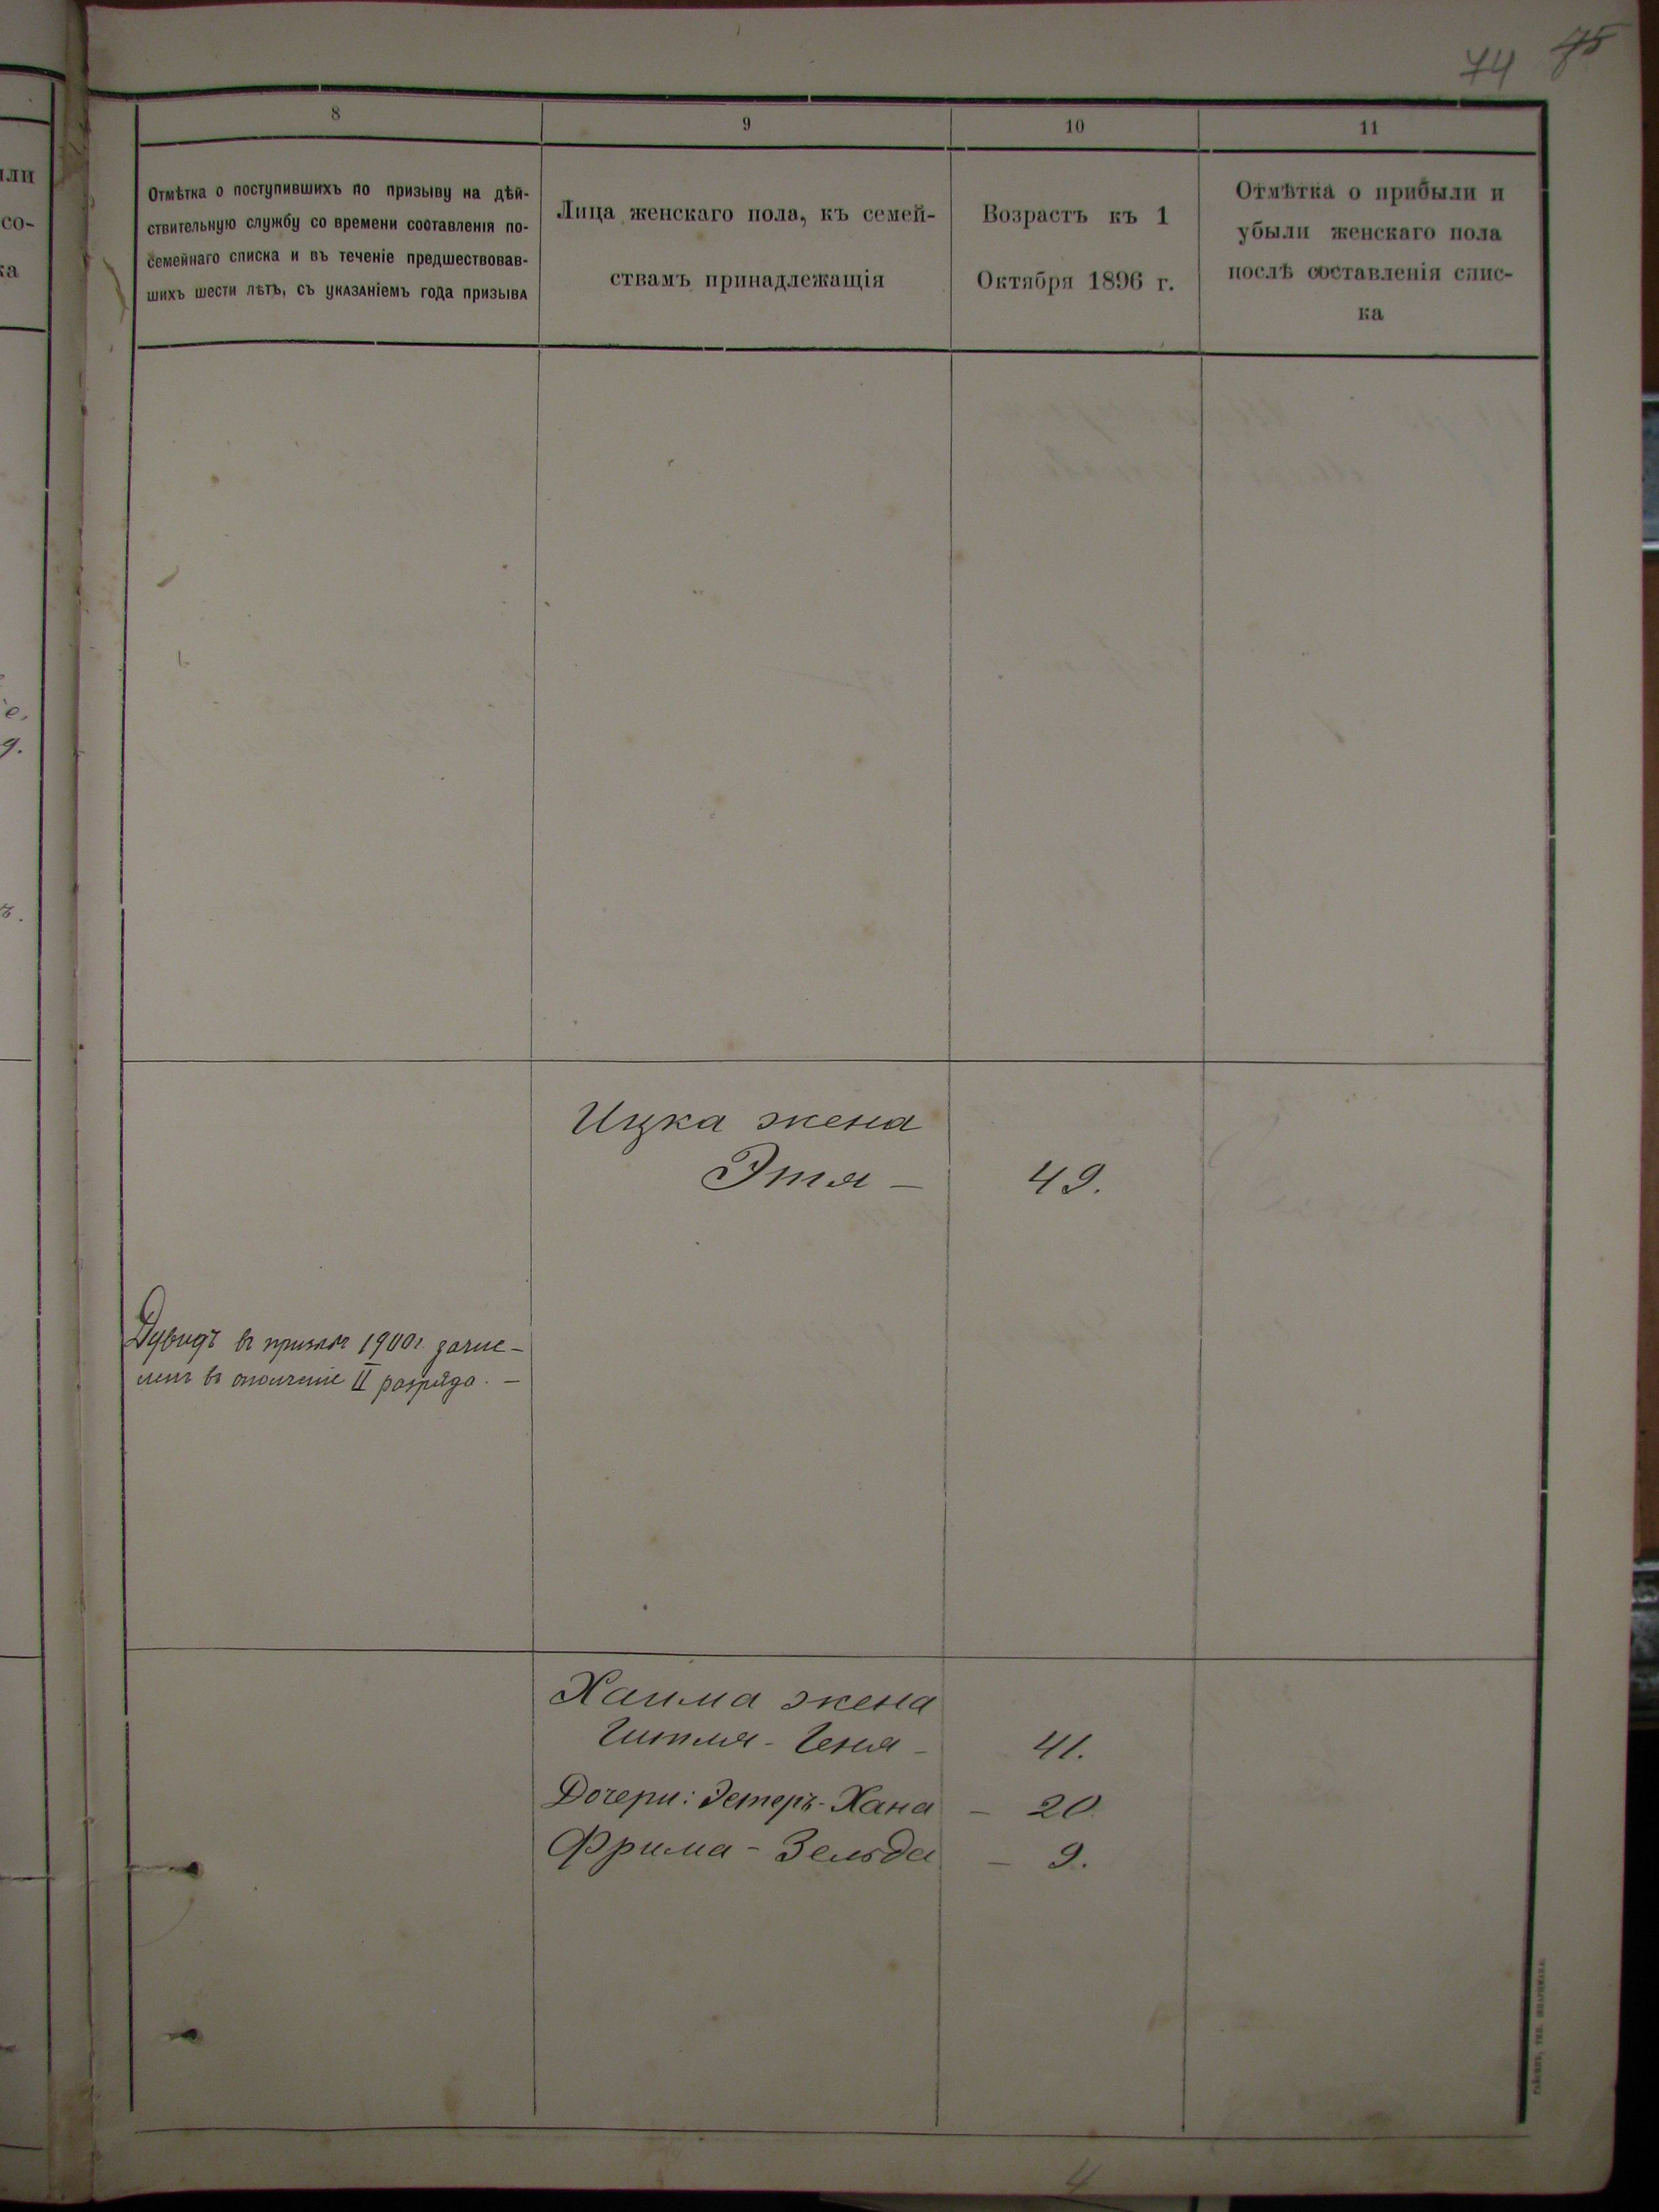 74 75
8
9
10
11
Отмѣтка о поступившихъ по призыву на дѣй-
ствительную службу со времени составленія по-
семейнаго списка и въ теченіе предшествовав-
шихъ шести лѣтъ, съ указаніемъ года призыва
Лица женскаго пола, къ семей-
ствамъ принадлежащія
Возрастъ къ 1
Октября 1896 г.
Отмѣтка о прибыли и
убыли женскаго пола
послѣ составленія спис-
ка
или
со-
ка
Ицка жена
Этя — 49.
Дувидъ въ призывъ 1900 г. зачис-
ленъ въ ополченіе II разряда. —
Хаима жена
Гитля - Геня - 41.
Дочери: Эстеръ - Хана - 20
Фрима - Зельда - 9.
4